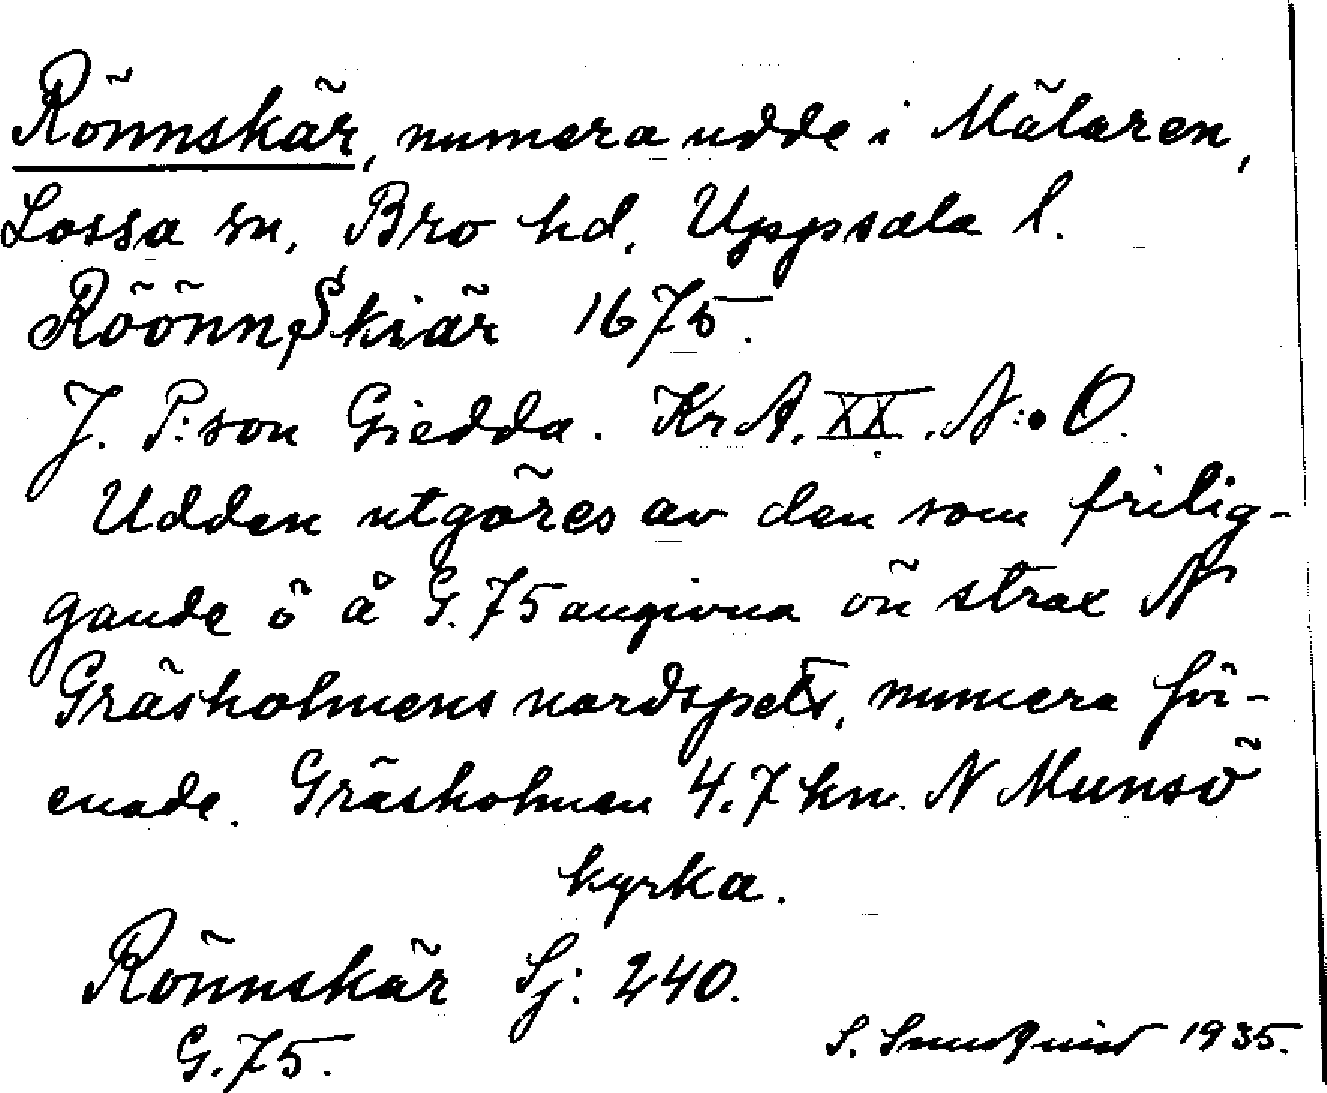 Rönnskär, numera udde i Mälaren,
Lossa sn, Bro hd, Uppsala l.
RöönnSkiär 1675.
J. P:son Giedda. KrA. XX. N:o O.
Udden utgöres av den som frilig-
gande ö å G.75 angivna ön strax N
Gräsholmens nordspets, numera för-
enade. Gräsholmen 4.7 km. N Munsö
kyrka.
Rönnskär Sj: 240.
G.75.
S. 1935.